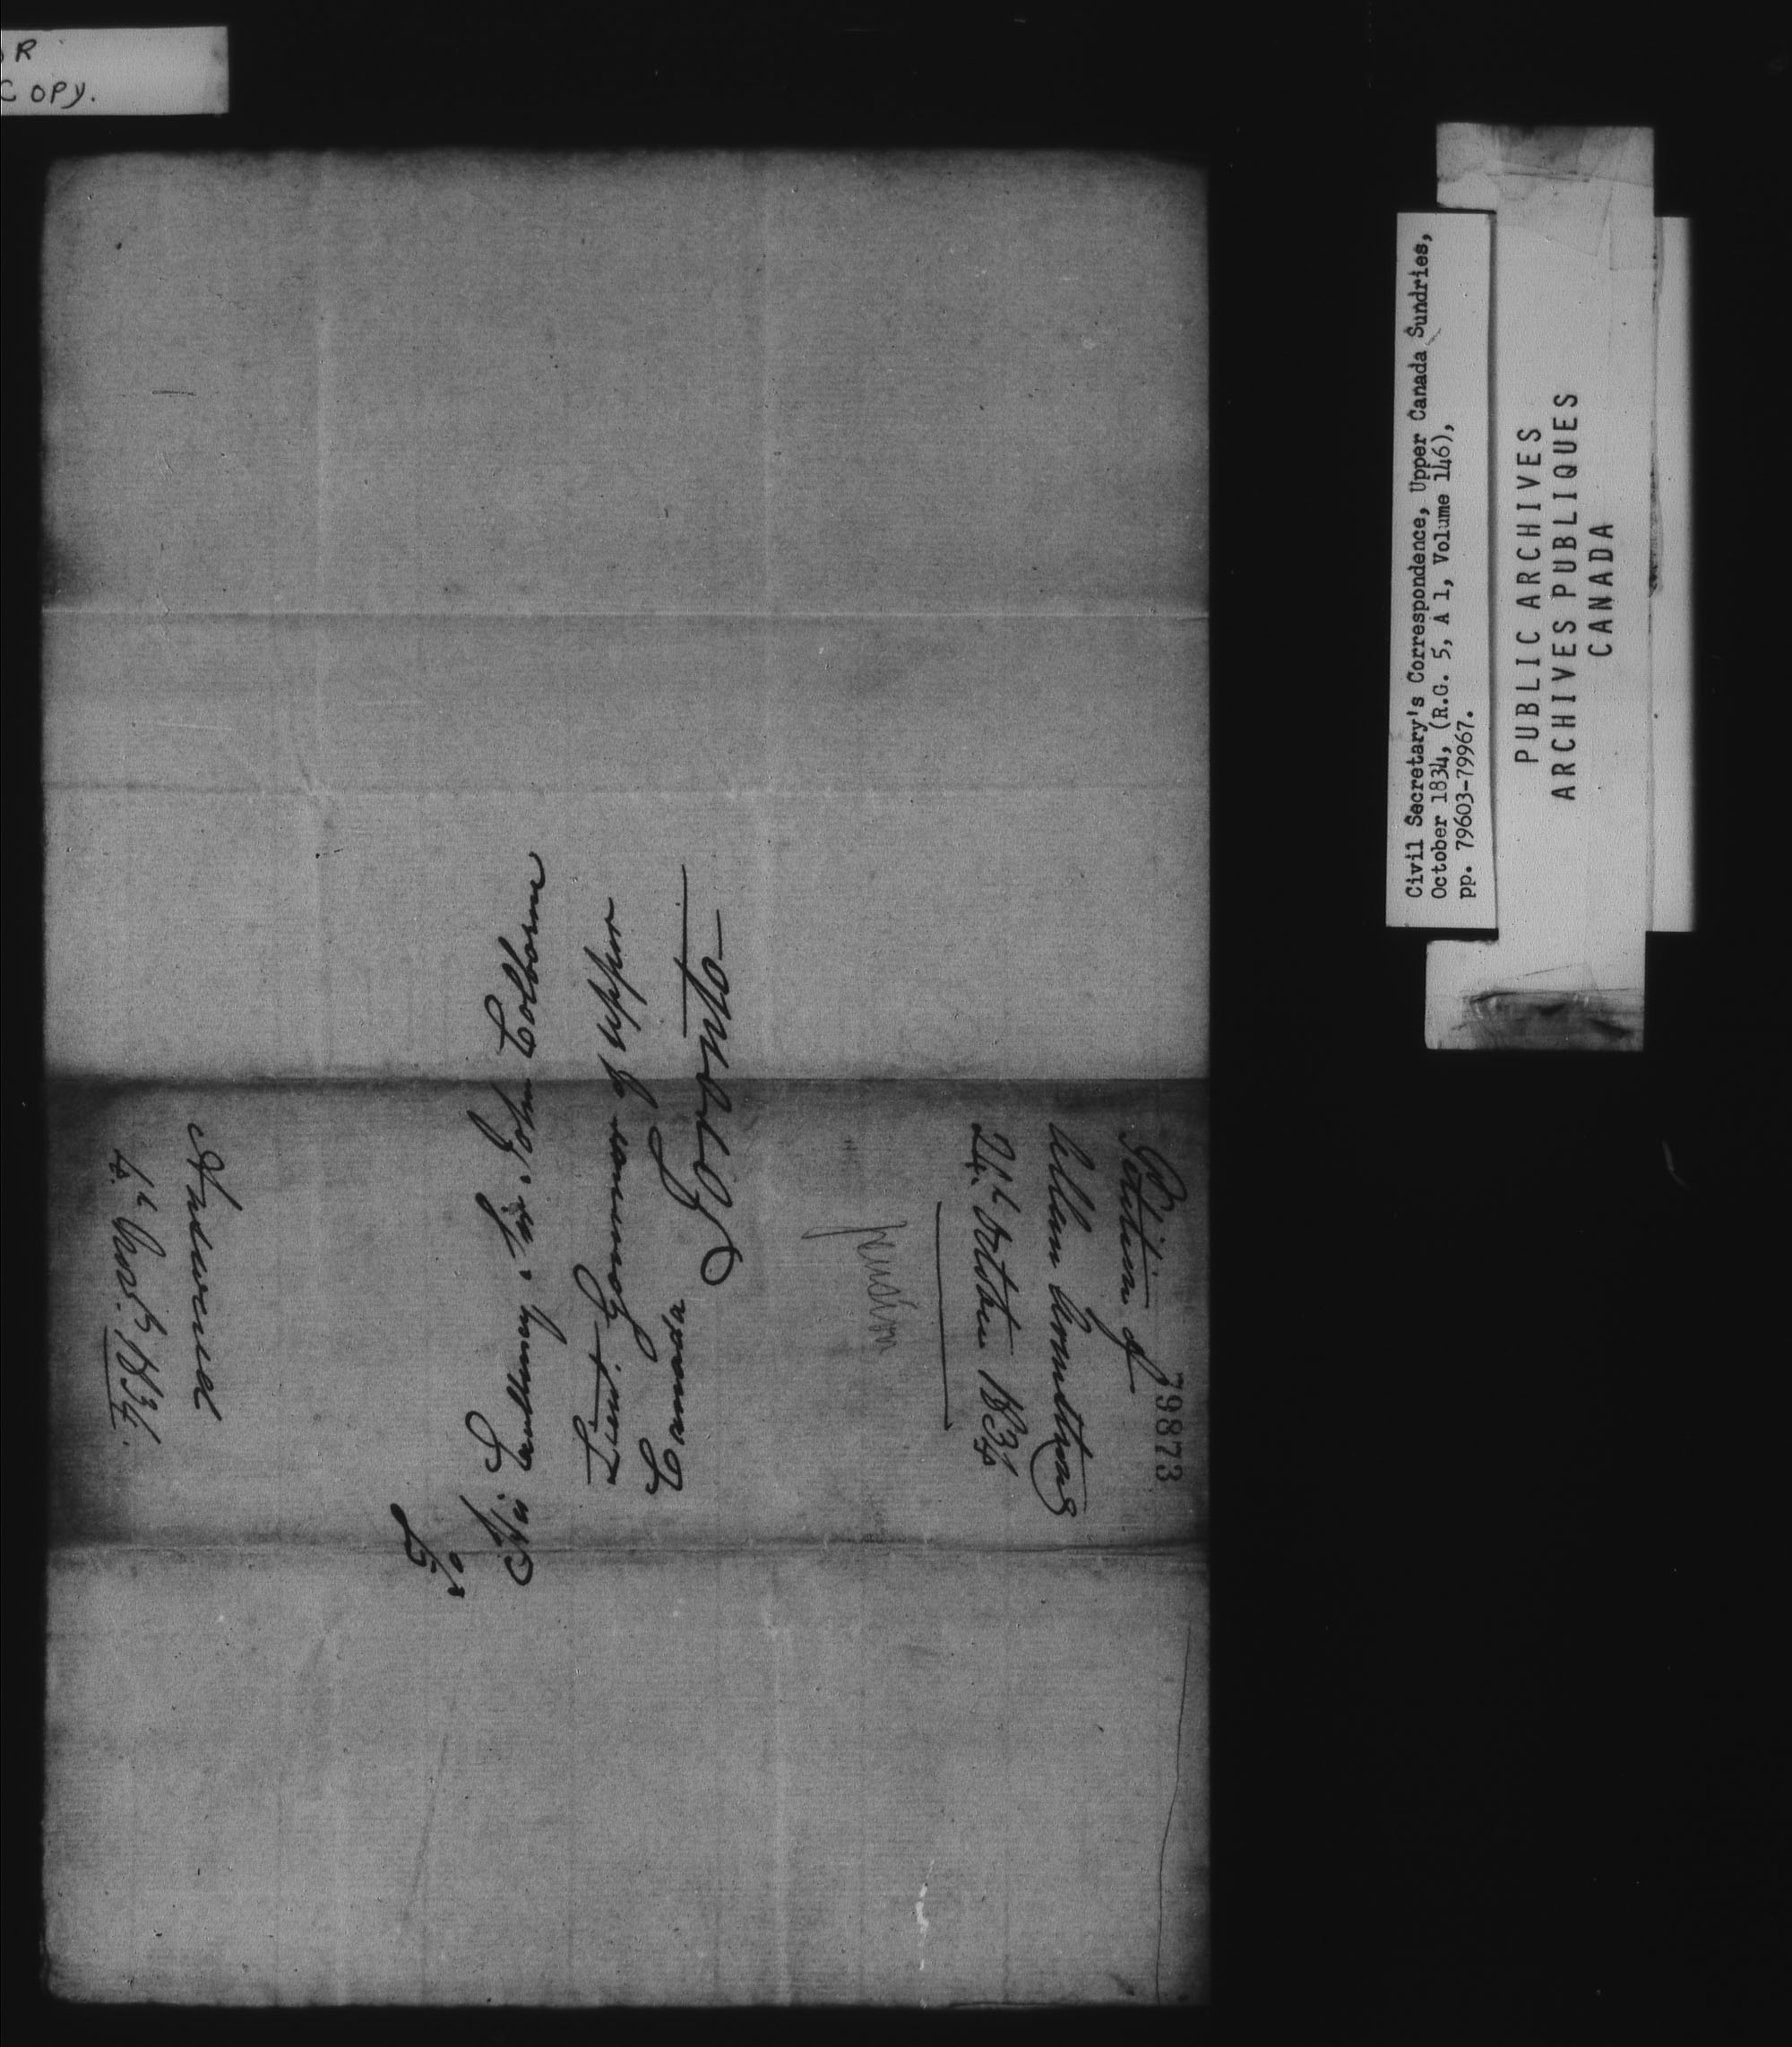 R
COPY.
79873
Petition of
Allan Armstrong
21st October 1834
To
His Excellency Sir John Colborne
Lieut. Governor of Upper
Canada
Toronto
Answered
Civil Secretary's Correspondence, Upper Canada Sundries,
October 1834, (R.G. 5, A 1, Volume 146),
pp. 79603-79967.
PUBLIC ARCHIVES
ARCHIVES PUBLIQUES
CANADA